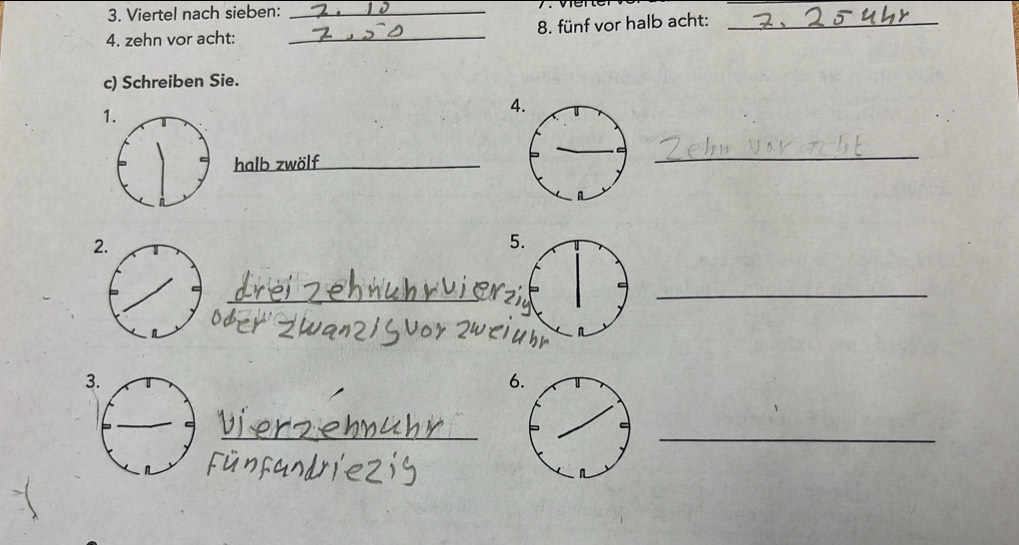 3. Viertel nach sieben: 7. 10
4. zehn vor acht: 7.50
8. fünf vor halb acht: 7. 25 uhr
c) Schreiben Sie.
1. halb zwölf
4. Zehn vor acht
2. drei zehnuhrvierzig
oder zwanzig vor zweiuhr
5.
3. Vierzehnuhr
Fünfundriezig
6.